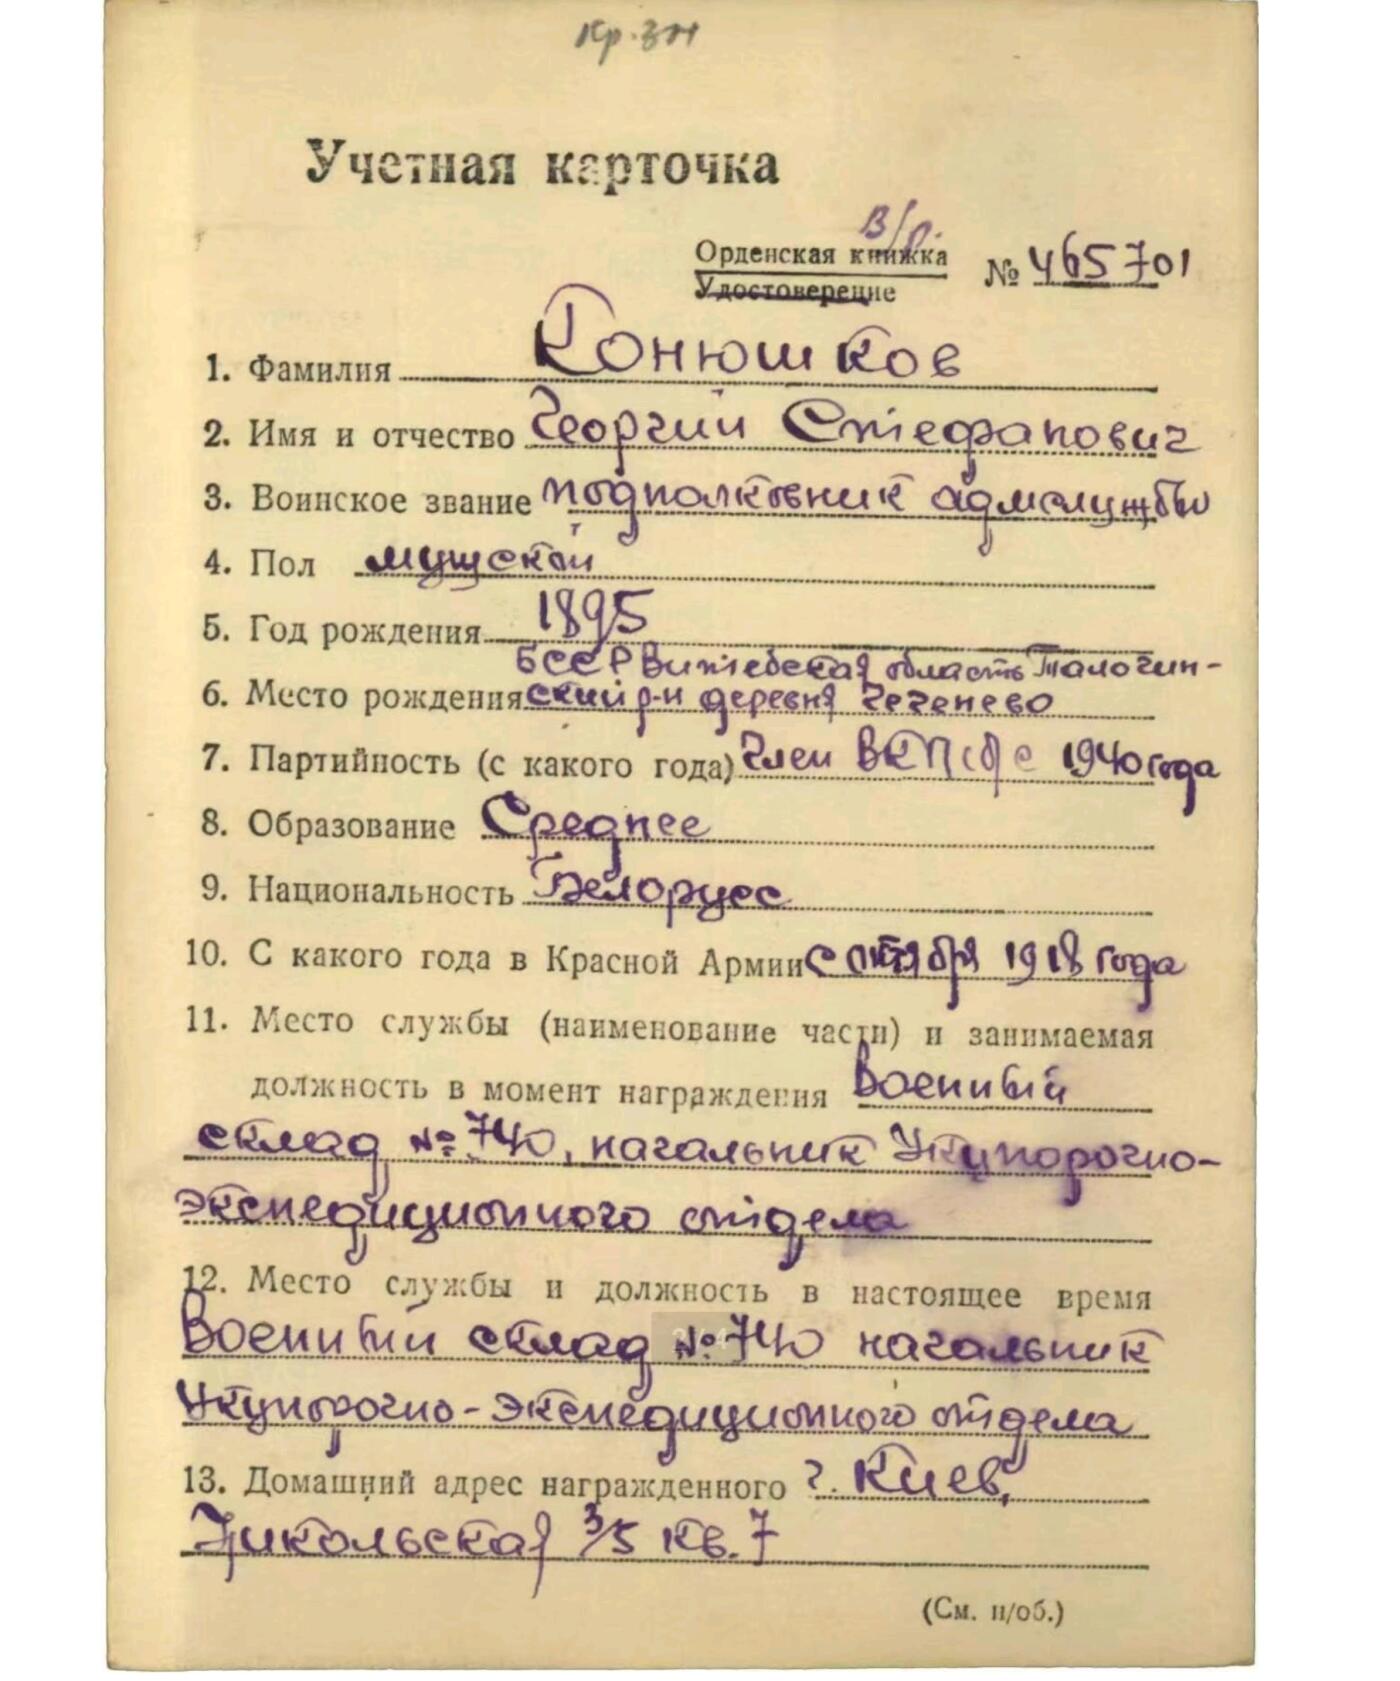 Кр. Зн
Учетная карточка
В/р.
Орденская книжка
Удостоверение
№ 465701
1. Фамилия Конюшков
2. Имя и отчество Георгий Стефанович
3. Воинское звание подполковник адмслужбы
4. Пол мужской
5. Год рождения 1895
БССР Витебская область Талочин-
6. Место рождения ский р-н деревня Чеченево
7. Партийность (с какого года) Член ВКП(б) с 1940 года
8. Образование Среднее
9. Национальность Белорусс
10. С какого года в Красной Армии с октября 1918 года
11. Место службы (наименование части) и занимаемая
должность в момент награждения Военный
склад № 740, начальник Укупорочно-
экспедиционного отдела
12. Место службы и должность в настоящее время
Военный склад № 740 начальник
Укупорочно-экспедиционного отдела
13. Домашний адрес награжденного г. Киев,
Никольская 3/5 кв. 7
(См. н/об.)